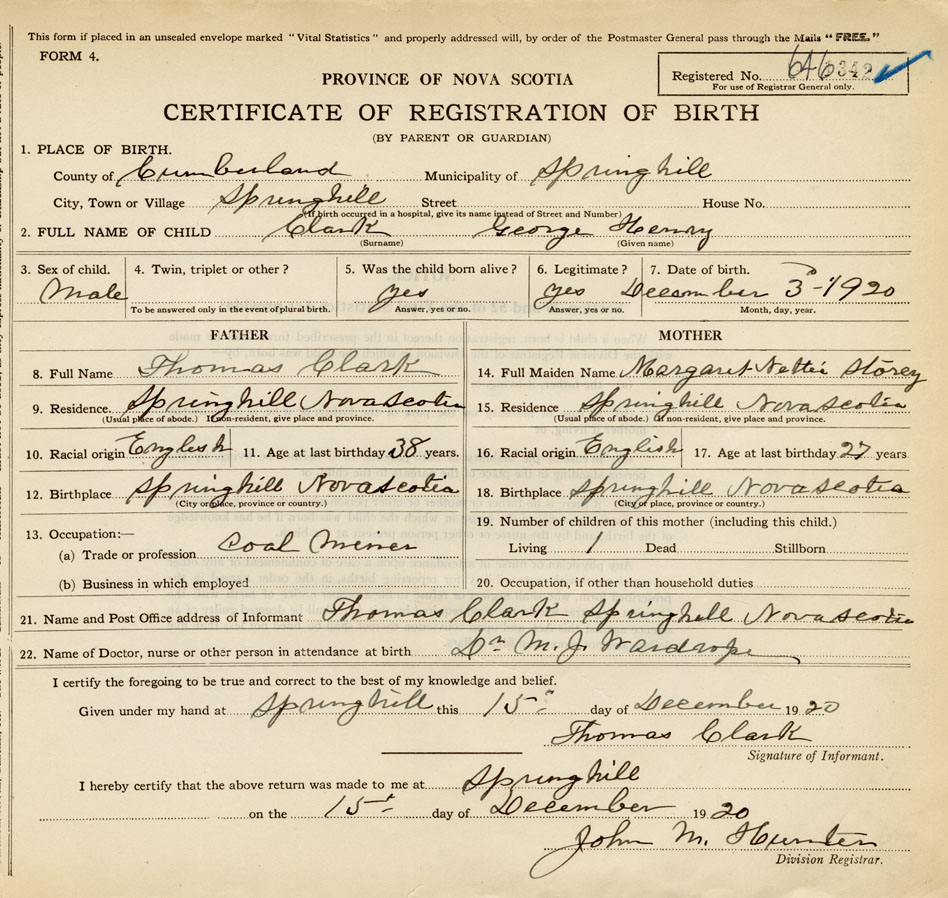 This form if placed in an unsealed envelope marked "Vital Statistics" and properly addressed will, by order of the Postmaster General pass through the Mails "FREE."
FORM 4.
PROVINCE OF NOVA SCOTIA
Registered No. 646342
For use of Registrar General only.
CERTIFICATE OF REGISTRATION OF BIRTH
(BY PARENT OR GUARDIAN)
1. PLACE OF BIRTH.
County of Cumberland Municipality of Springhill
City, Town or Village Springhill Street House No.
(If birth occurred in a hospital, give its name instead of Street and Number)
2. FULL NAME OF CHILD Clark George Henry
(Surname) (Given name)
3. Sex of child. 4. Twin, triplet or other? 5. Was the child born alive? 6. Legitimate? 7. Date of birth.
Male yes yes December 3-1920
To be answered only in the event of plural birth. Answer, yes or no. Answer, yes or no. Month, day, year.
FATHER MOTHER
8. Full Name Thomas Clark 14. Full Maiden Name Margaret Nettie Storey
9. Residence Springhill Nova Scotia 15. Residence Springhill Nova Scotia
(Usual place of abode.) If non-resident, give place and province. (Usual place of abode.) If non-resident, give place and province.
10. Racial origin English 11. Age at last birthday 38 years. 16. Racial origin English 17. Age at last birthday 27 years
12. Birthplace Springhill Nova Scotia 18. Birthplace Springhill Nova Scotia
(City or place, province or country.) (City or place, province or country.)
13. Occupation:— 19. Number of children of this mother (including this child.)
(a) Trade or profession Coal Meiner Living 1 Dead Stillborn
(b) Business in which employed 20. Occupation, if other than household duties
21. Name and Post Office address of Informant Thomas Clark Springhill Nova Scotia
22. Name of Doctor, nurse or other person in attendance at birth Dr M. J. Wardrope
I certify the foregoing to be true and correct to the best of my knowledge and belief.
Given under my hand at Springhill this 15 day of December 1920
Thomas Clark
Signature of Informant.
I hereby certify that the above return was made to me at Springhill
on the 15th day of December 1920
John M. Hunter
Division Registrar.